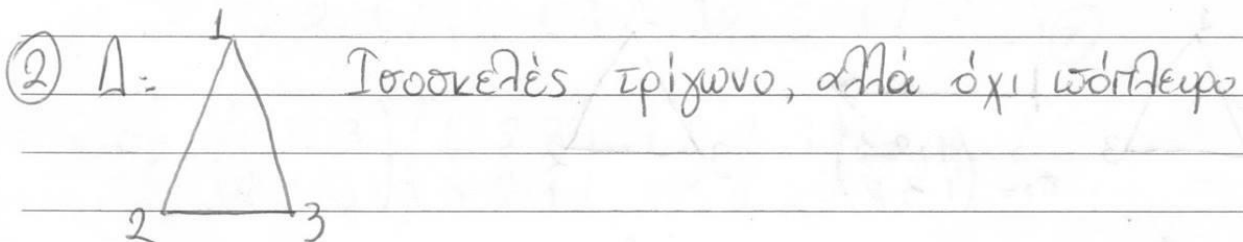 1
② Δ: Ισοσκελές τρίγωνο, αλλά όχι ισόπλευρο
2 3